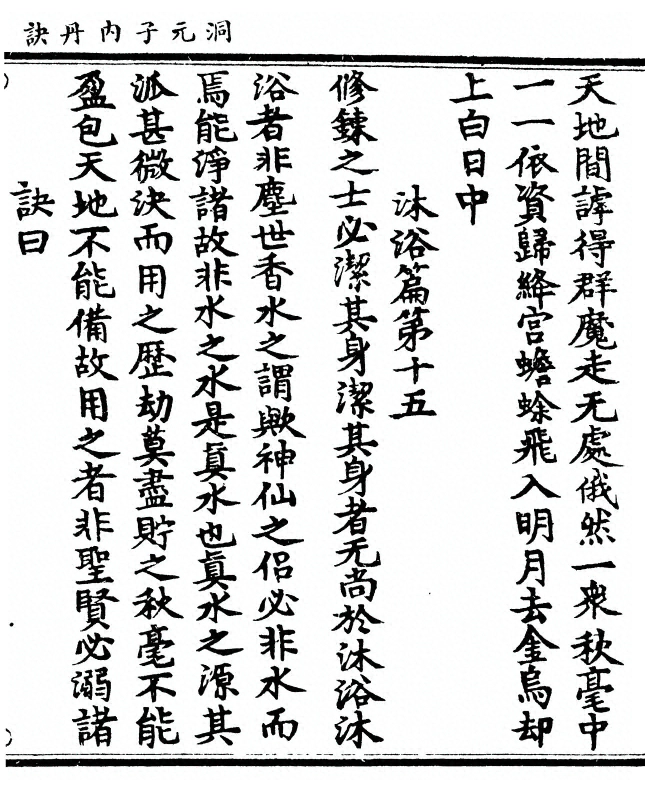 洞元子內丹訣
天地間謼得群魔走无處俄然一衆秋毫中
一一依資歸絳宮蟾蜍飛入明月去金烏却
上白日中
沐浴篇第十五
修鍊之士必潔其身潔其身者无尚於沐浴沐
浴者非塵世香水之謂歟神仙之侣必非水而
焉能淨諸故非水之水是眞水也眞水之源其
派甚微決而用之歷劫莫盡貯之秋毫不能
盈包天地不能備故用之者非聖賢必溺諸
訣曰